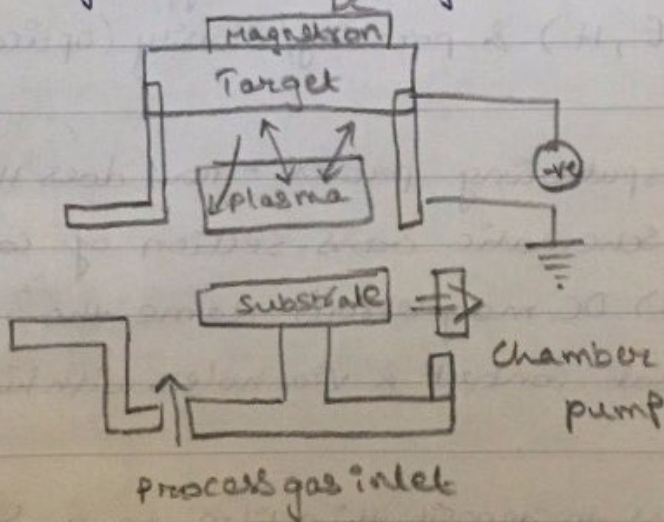 DC
Magnetron
Target
-ve
plasma
substrate
Chamber
pump
process gas inlet